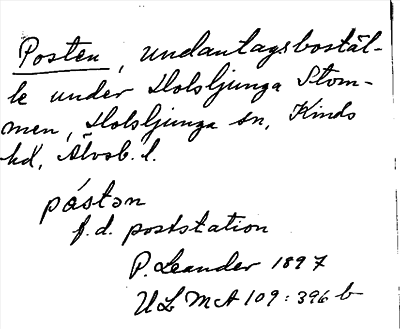 Posten, undantagsbostäl-
le under Holsljunga Stom-
men, Holsljunga sn, Kinds
hd, Älvsb. l.
påstən
f.d. poststation
P. Leander 1897
ULMA 109:396 b